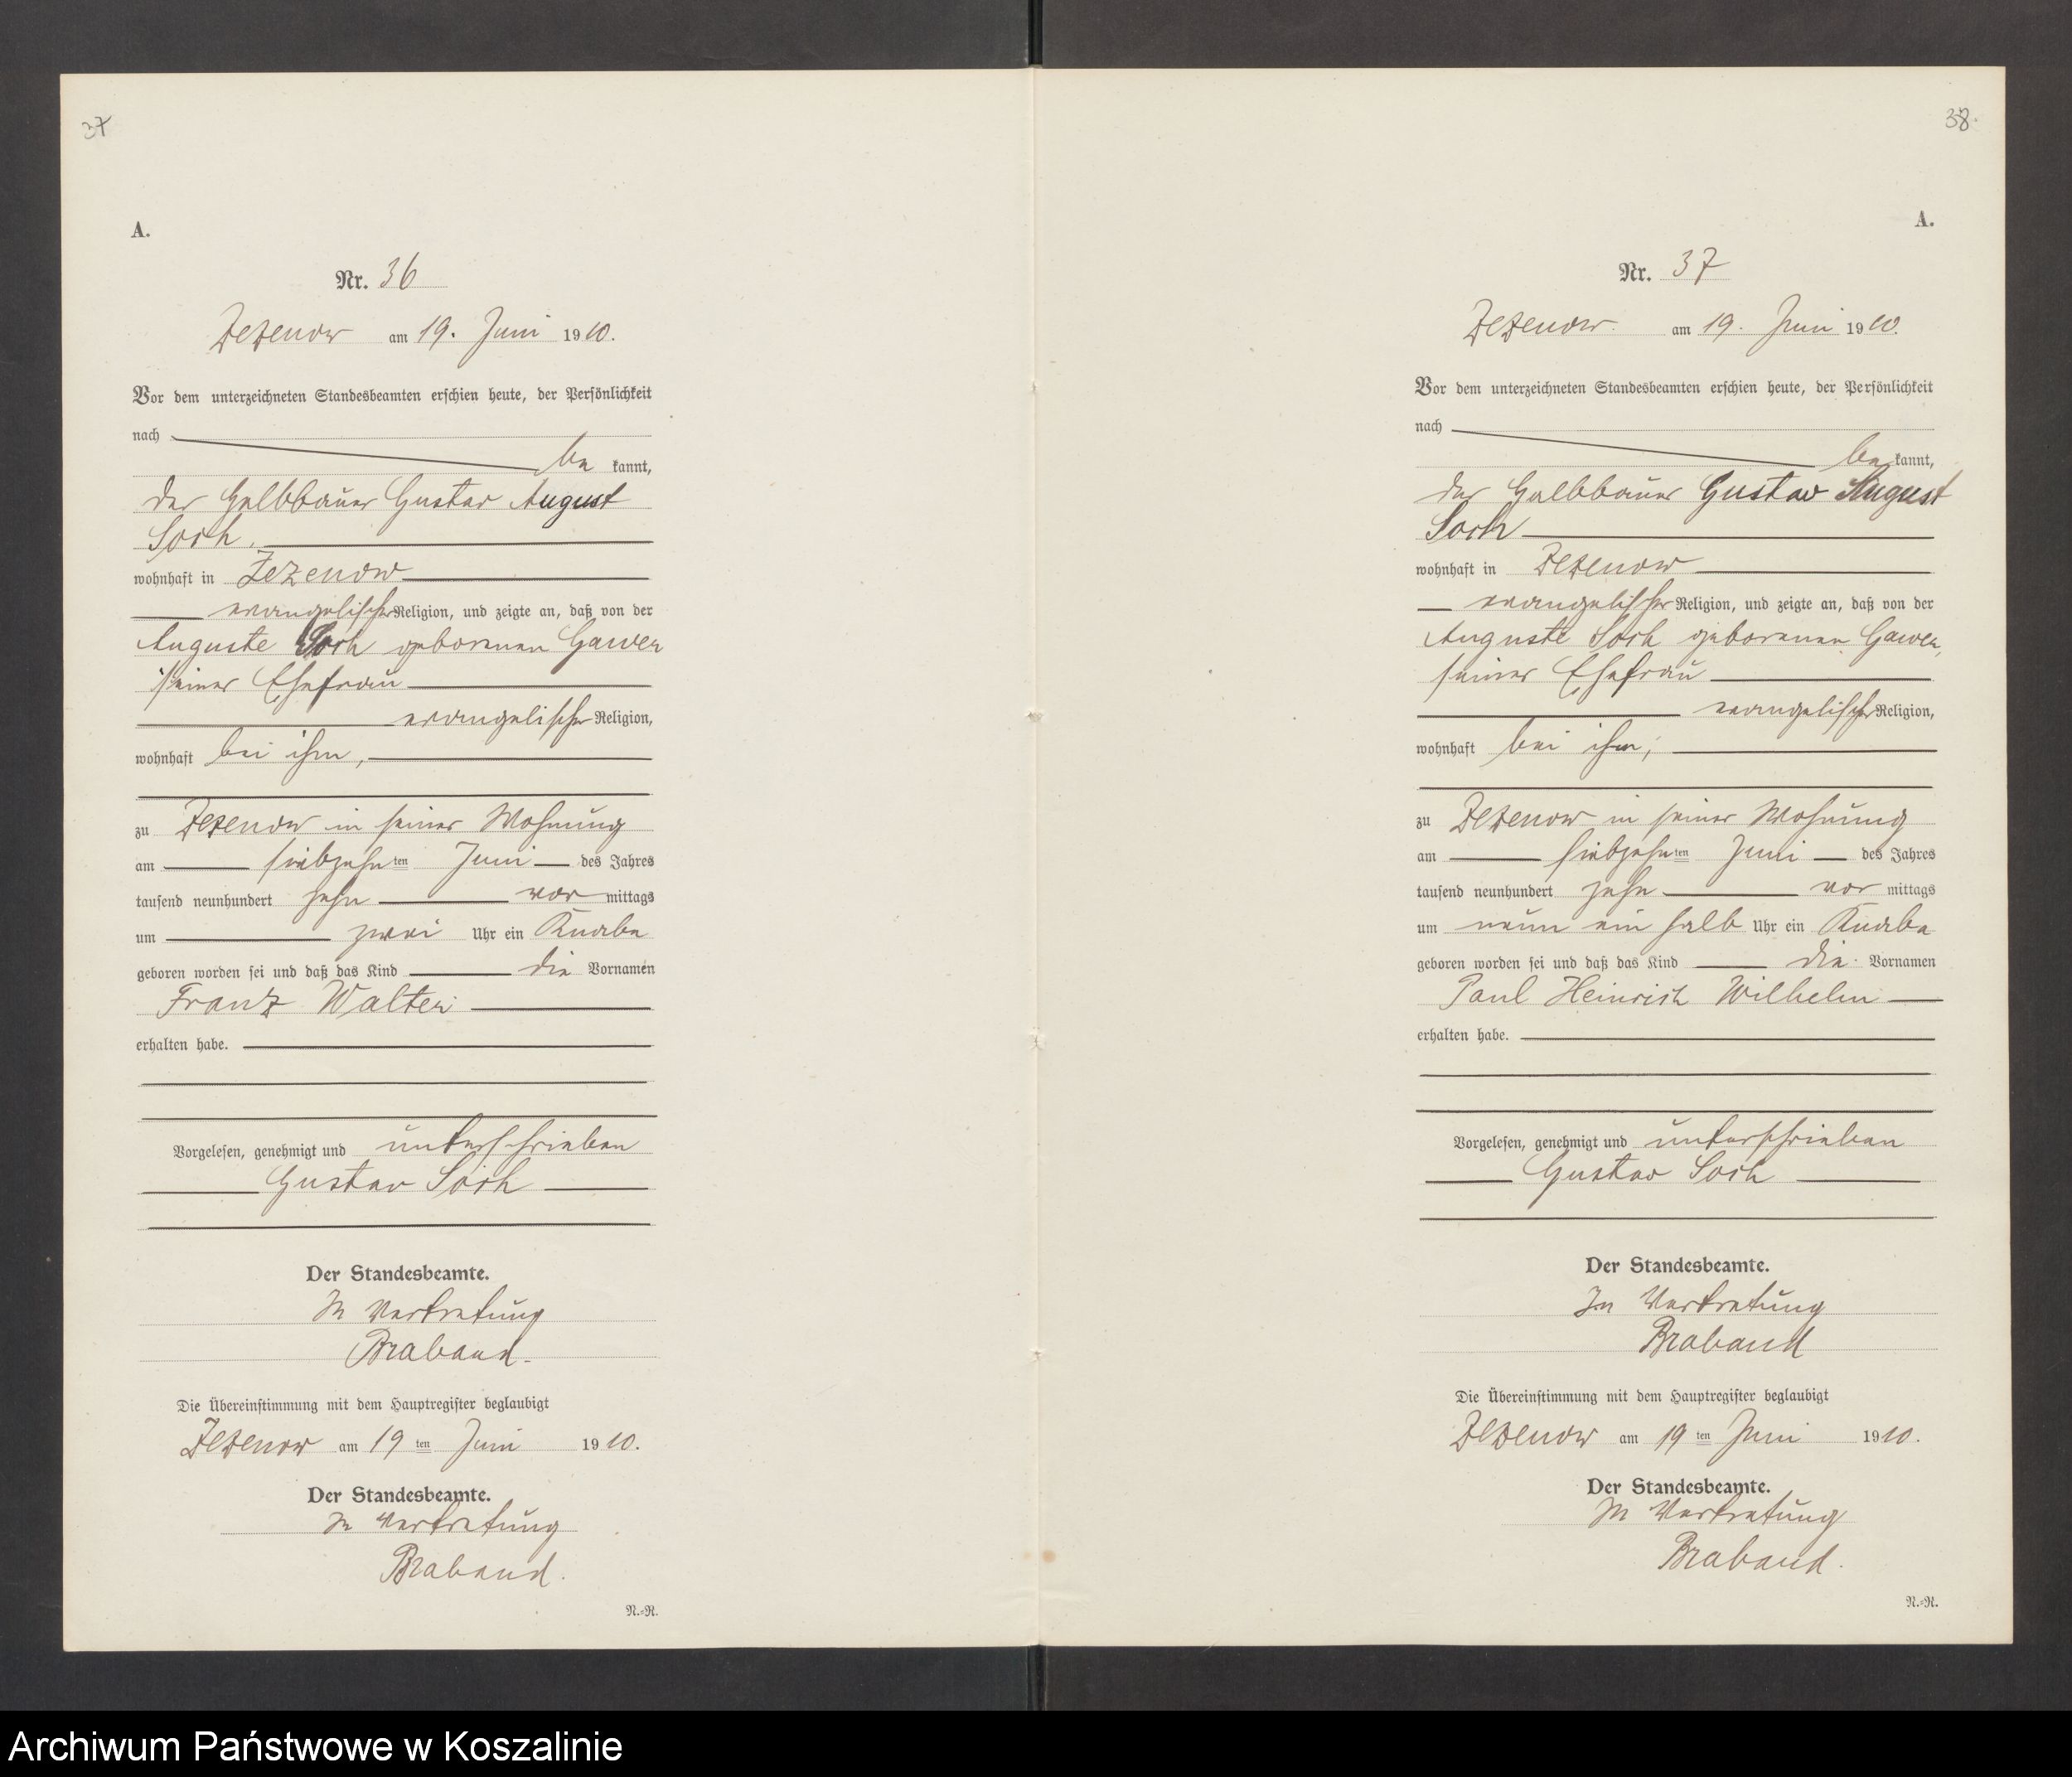 37
A.
Nr. 36
Zezenow am 19. Juni 1910.
Vor dem unterzeichneten Standesbeamten erschien heute, der Persönlichkeit
nach
be kannt,
der Halbbauer Gustav August
Sosh,
wohnhaft in Zezenow
evangelischer Religion, und zeigte an, daß von der
Auguste geborenen Gawen
seiner Ehefrau
evangelischer Religion,
wohnhaft bei ihm,
zu Zezenow in seiner Wohnung
am siebzehnten Juni des Jahres
tausend neunhundert zehn vor mittags
um zwei Uhr ein Knabe
geboren worden sei und daß das Kind die Vornamen
Franz Walter
erhalten habe.
Vorgelesen, genehmigt und unterschrieben
Gustav
Der Standesbeamte.
In Vertretung
Braband.
Die Übereinstimmung mit dem Hauptregister beglaubigt
Zezenow am 19 ten Juni 1910.
Der Standesbeamte.
In Vertretung
Braband.
N.=R.
38.
A.
Nr. 37
Zezenow am 19. Juni 1910.
Vor dem unterzeichneten Standesbeamten erschien heute, der Persönlichkeit
nach
be kannt,
der Halbbauer Gustav August
wohnhaft in Zezenow
evangelischer Religion, und zeigte an, daß von der
Auguste geborenen Gawen,
seiner Ehefrau
evangelischer Religion,
wohnhaft bei ihm,
zu Zezenow in seiner Wohnung
am siebzehnten Juni des Jahres
tausend neunhundert zehn vor mittags
um neun ein halb Uhr ein Knabe
geboren worden sei und daß das Kind die Vornamen
Paul Heinrich Wilhelm
erhalten habe.
Vorgelesen, genehmigt und unterschrieben
Gustav
Der Standesbeamte.
In Vertretung
Braband
Die Übereinstimmung mit dem Hauptregister beglaubigt
Zezenow am 19 ten Juni 1910.
Der Standesbeamte.
In Vertretung
Braband.
N.=R.
Archiwum Państwowe w Koszalinie